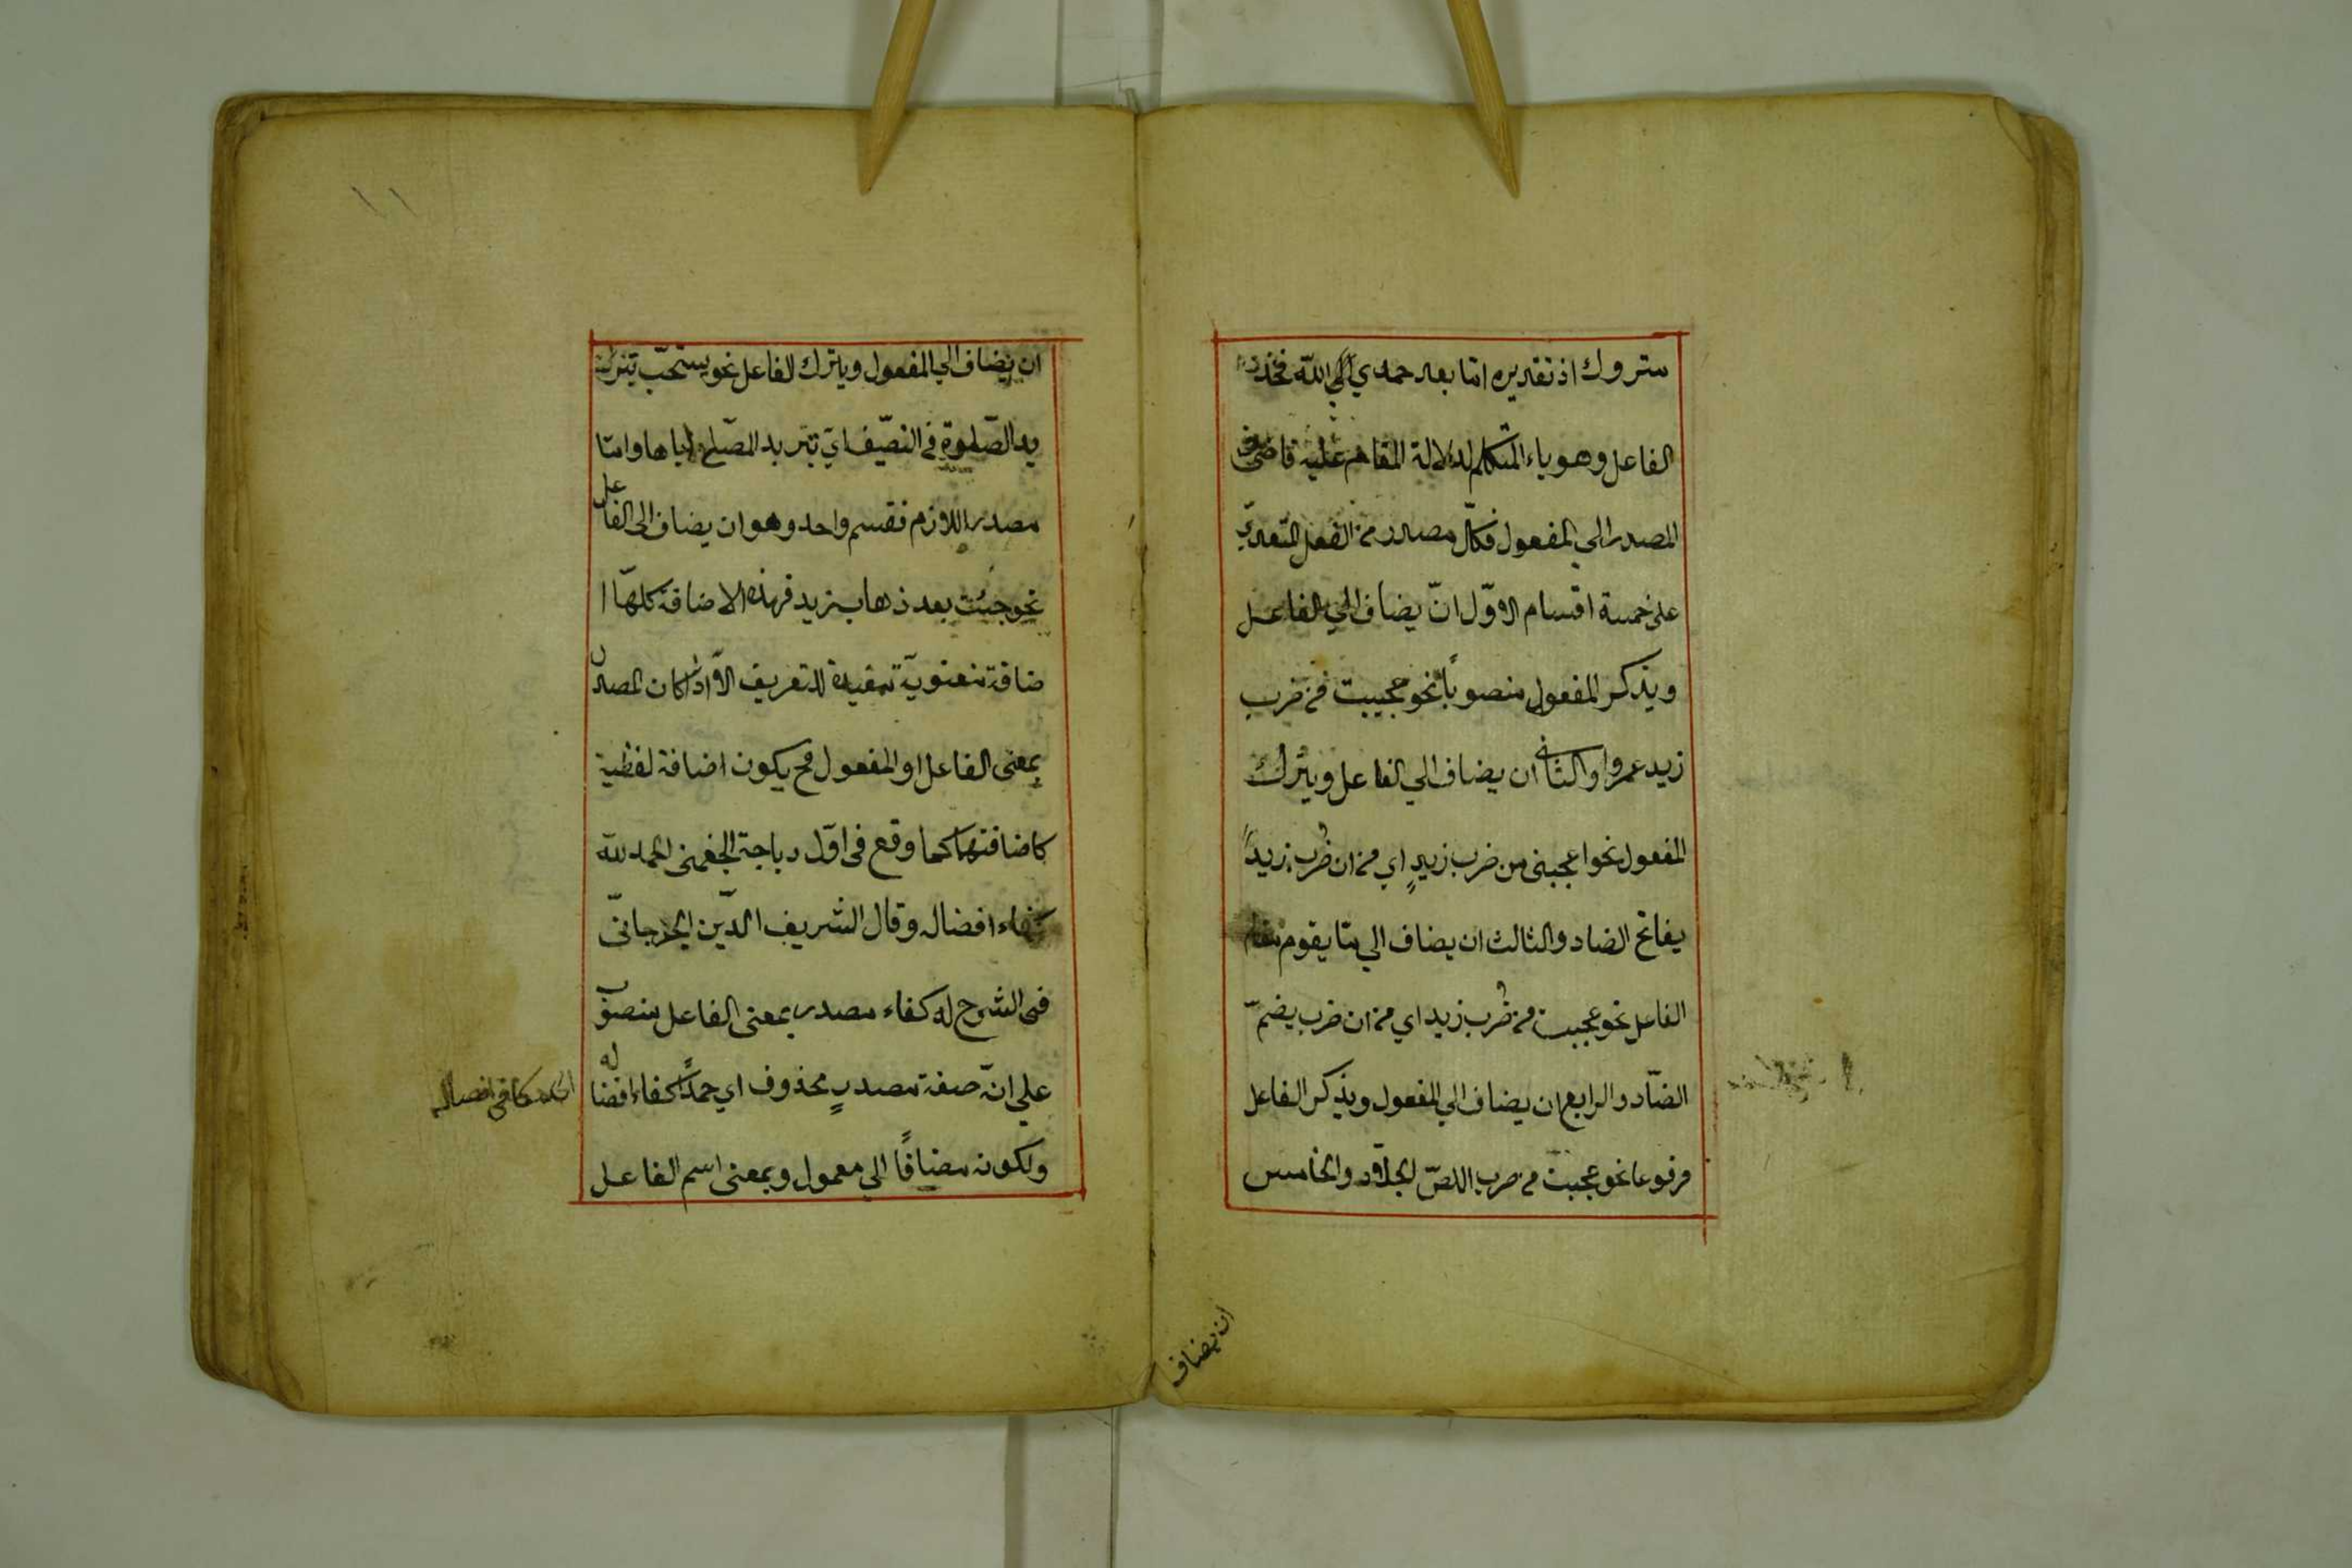 متروك اذ تقديره اما بعد حمدي الله فحذف
الفاعل وهو ياء المتكلم لدلالة المقام عليه فاضيف
المصدر الي المفعول فكلّ مصدر من الفعل المتعدي
على خمسة اقسام الاوّل انّ يضاف الي الفاعل
ويذكر المفعول منصوباً نحو عجبت من ضرب
زيد عمروا والثاني ان يضاف الي الفاعل ويترك
المفعول نحو اعجبني من ضرب زيدٍ اي من ان ضرب زيداً
يفاتح الضاد والثالث ان يضاف الي ما يقوم مقام
الفاعل نحو عجبت من ضُرب زيد اي من ان ضرب يضمّ
الضّاد والرابع ان يضاف الي المفعول ويذكر الفاعل
مرفوعا نحو عجبت من ضرب اللصّ الجلّاد والخامس
ان يضاف
١١
ان يضاف الي المفعول ويترك الفاعل نحو يستحبّ
الصّلوة في الصّيف اي تبريد المصلّي اياها وامّا
مصدر اللازم فقسم واحد وهو ان يضاف الى الفاعل
نحو جئت بعد ذهاب زيد فهذه الاضافة كلهّا ا
ضافة معنويّة مفيدة للتعريف الّا اذا كان المصدر
بمعنى الفاعل او المفعول فح يكون اضافة لفظية
كاضافتها كما وقع في اوّل دباجة الجغمني الحمد لله
كفاء افضاله وقال الشريف الدّين الجرجانيّ
في الشرح له كفاء مصدر بمعنى الفاعل منصوب
علي انّه صفة مصدرٍ محذوف اي حمداً كفاء افضاله
كافي افضاله
ولكونه مضيافاً الي معمول وبمعنى اسم الفاعل